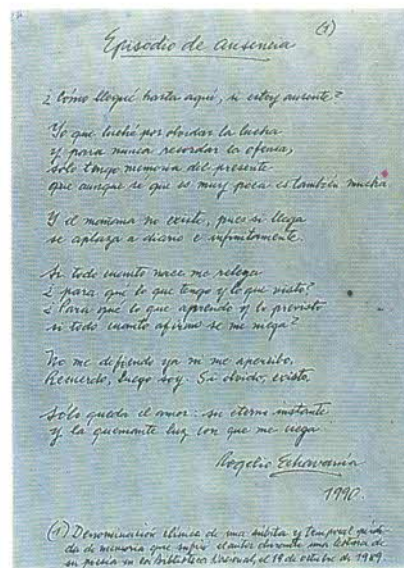 (1)
Episodio de ausencia
¿Cómo llegué hasta aquí, si estoy ausente?
Yo que luché por olvidar la lucha
y para nunca recordar la ofensa,
sólo tengo memoria del presente
que aunque sé que es muy poca es también mucha
Y el mañana no existe, pues si llega
se aplaza a diario e infinitamente.
Si todo cuanto nace me relega
¿para qué lo que tengo y lo que visto?
¿Para qué lo que aprendo y lo previsto
si todo cuanto afirman se me niega?
No me defiendo ya ni me apercibo.
Recuerdo, luego soy. Si olvido, existo.
Sólo queda el amor: su eterno instante
y la quemante luz con que me ciega
Rogelio Echavarría
1990.
(1) Denominación clínica de una súbita y temporal pérdi-
da de memoria que sufrió el autor durante una lectura de
su poesía en la Biblioteca Nacional, el 19 de octubre de 1989.